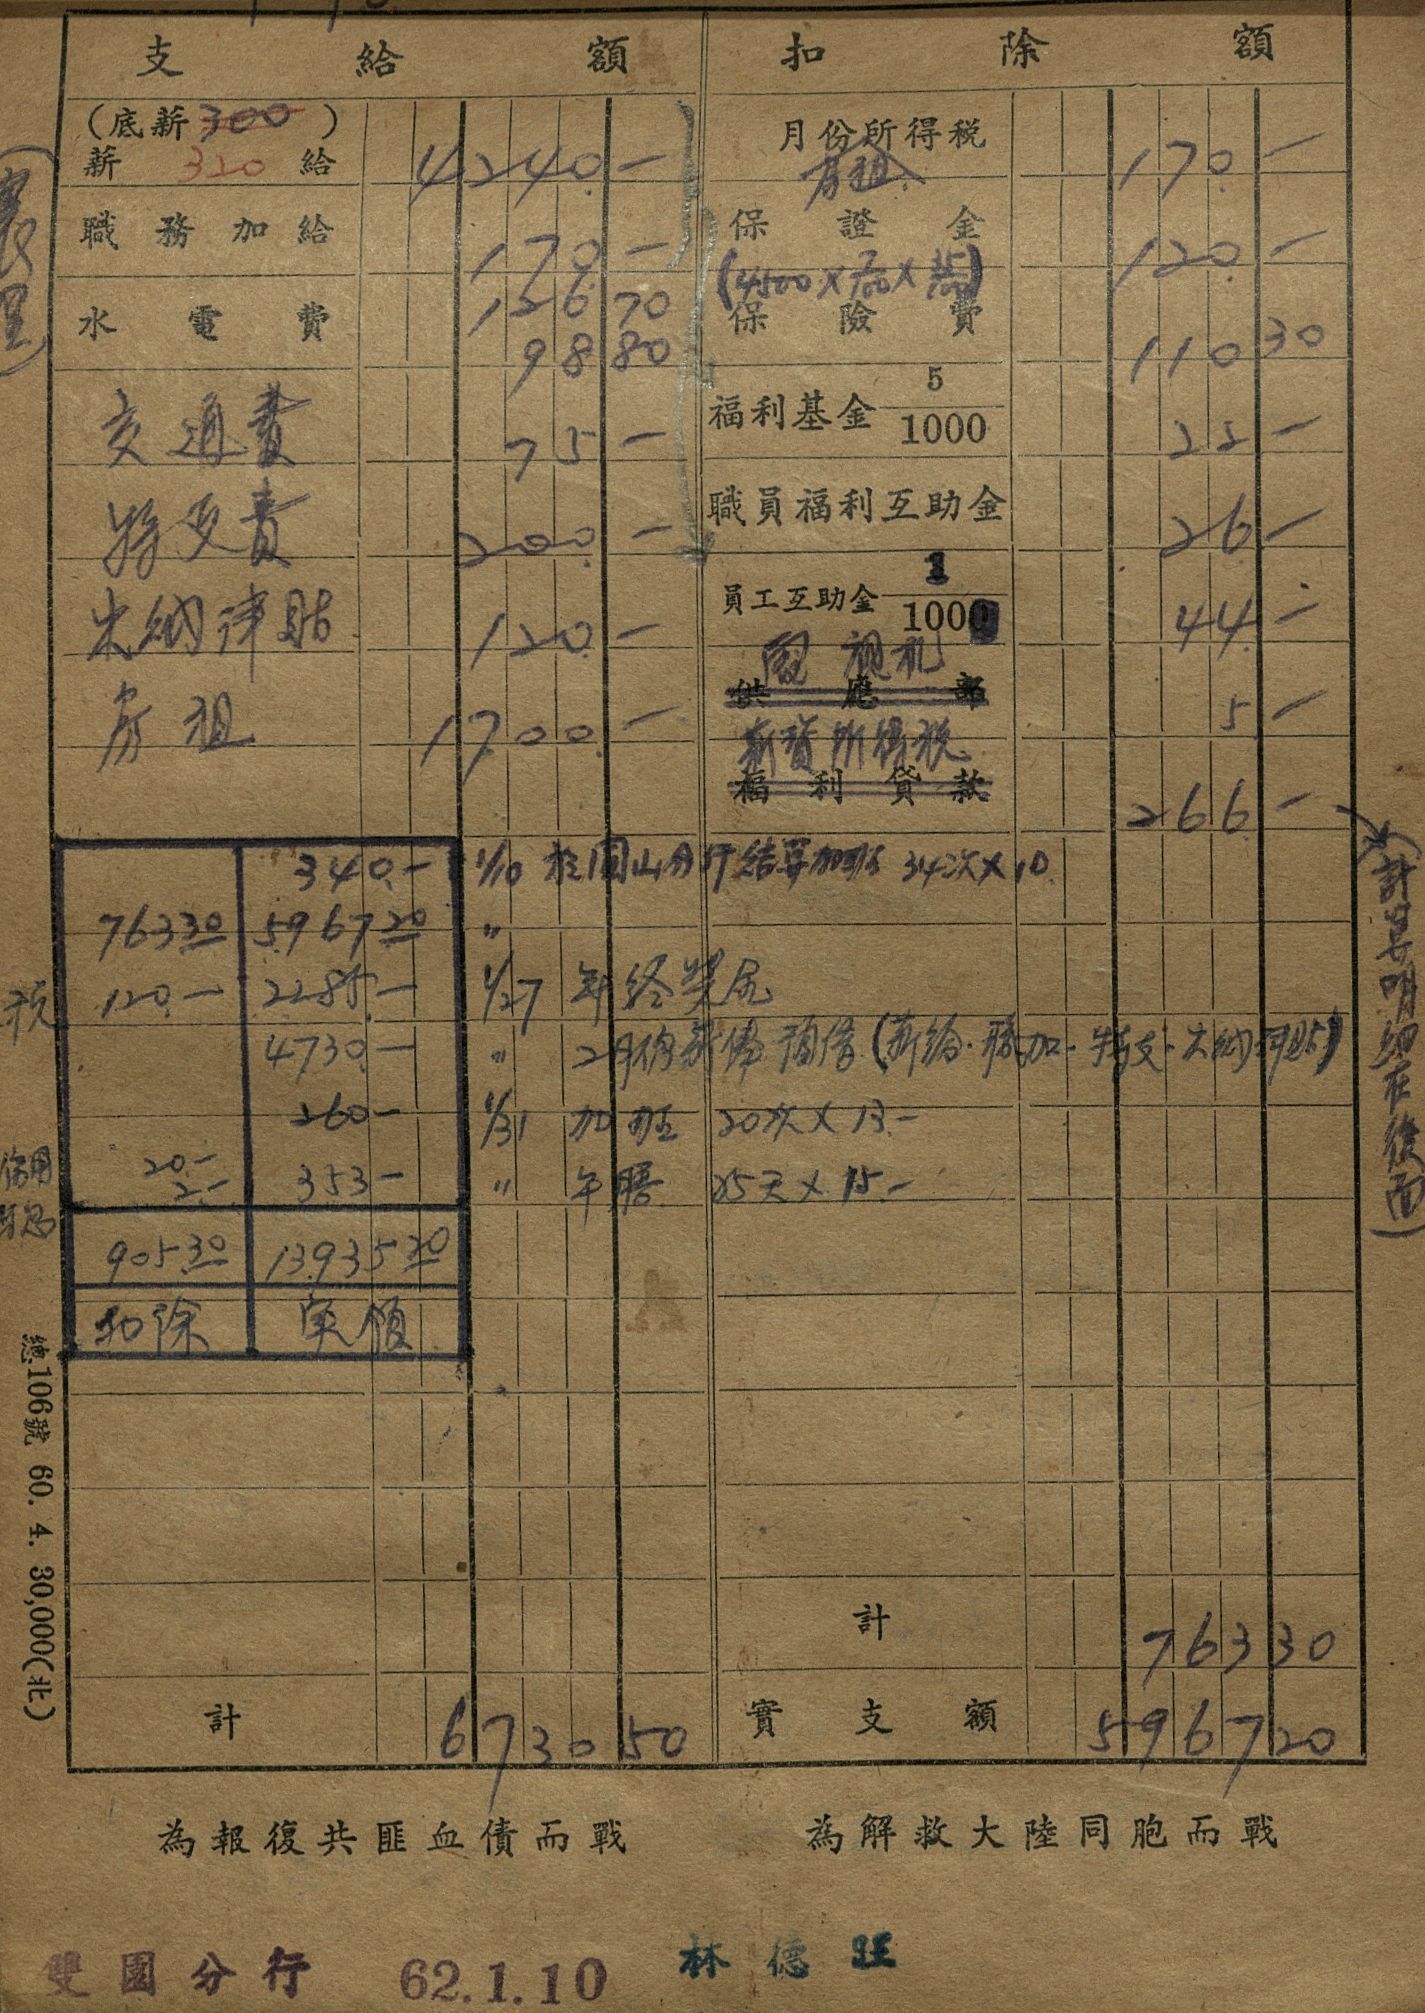 支給額
(底薪300)
薪320給 4240.—
職務加給 170.—
水電費 126.70
98 80
交通費 75 —
特支費 200.—
米納津貼 120.—
房租 1700.—
扣除額
月份所得税 170.—
房租
保證金 120.—
(4500×
保險費 110 30
福利基金 5/1000 22 —
職員福利互助金 26 —
員工互助金 1/1000 44 —
祝礼
供應部 5 —
薪資所得税
福利貸款 266 —
(計算明細在後面)
340.— 1/10 於圓山分行結算加班 34次×10
763.30 5967.20 〃
税 120.— 2285.— 1/27 年終獎金
4730.— 〃 2月份薪俸預借(薪給.職加.特支.米納津貼)
260— 1/31 加班 20次×13.—
20.—
2.— 353— 〃 午膳 25天×15.—
905.30 13935.20
扣除 实領
計 763 30
計 6730 50
實支額 5967 20
總106號 60. 4. 30,000(北)
為報復共匪血債而戰
為解救大陸同胞而戰
雙園分行 62.1.10 林德旺